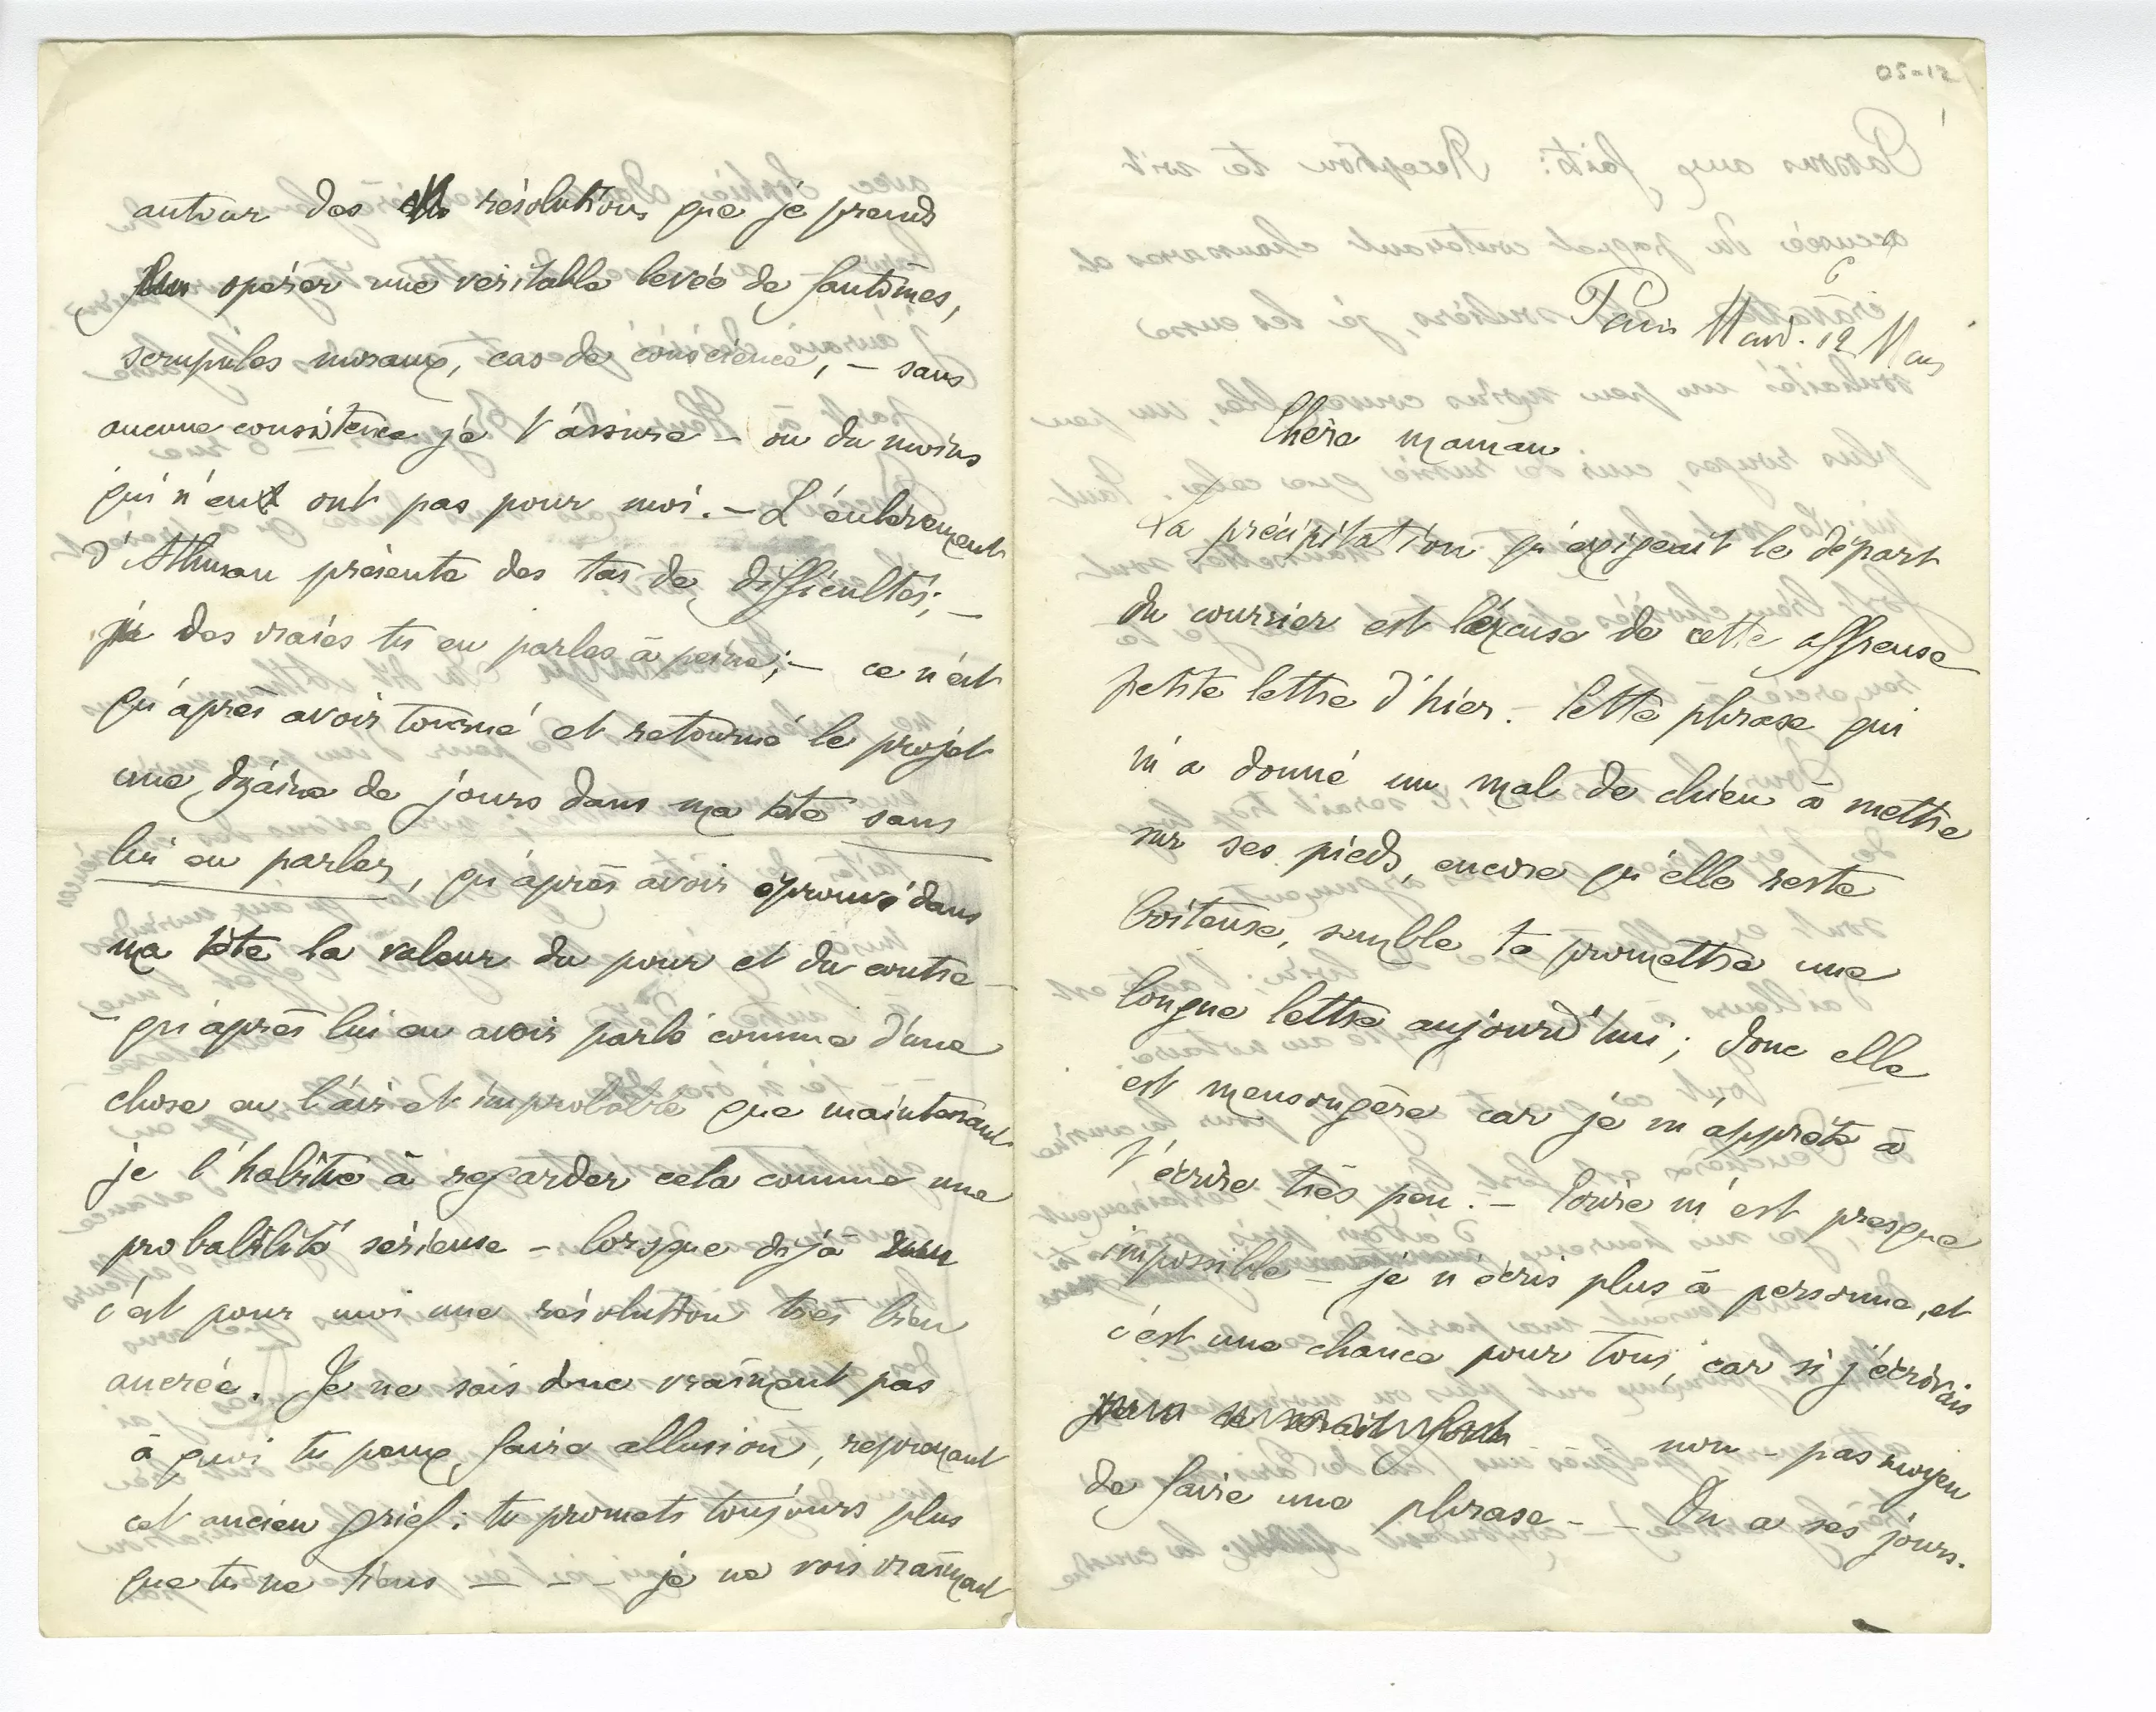 Paris Mardi. 12 Mars
Chère maman
La précipitation qu'exigeait le départ
du courrier est l'excuse de cette affreuse
petite lettre d'hier. – Cette phrase qui
m'a donné un mal de chien à mettre
sur ses pieds, encore qu'elle reste
boiteuse, semble te promettre une
longue lettre aujourd'hui; donc elle
est mensongère car je m'apprête à
t'écrire très peu. – Écrire m'est presque
impossible – je n'écris plus à personne, et
c'est une chance pour tous, car si j'écrivais
non – pas moyen
de faire une phrase – – On a ses jours.
autour des résolutions que je prends
opérer une véritable levée de fantômes,
scrupules moraux, cas de conscience, – sans
aucune consistence je t'assure – ou du moins
qui n'en ont pas pour moi. – L'enlèvement
d'Athman présente des tas de difficultés; –
des vraies tu en parles à peine; – ce n'est
qu'après avoir tourné et retourné le projet
une dizaine de jours dans ma tête sans
lui en parler, qu'après avoir éprouvé dans
ma tête la valeur du pour et du contre –
– qu'après lui en avoir parlé comme d'une
chose en l'air et improbable que maintenant
je l'habitue à regarder cela comme une
probabilité sérieuse – lorsque déjà
c'est pour moi une résolution très bien
ancrée. Je ne sais donc vraiment pas
à quoi tu peux faire allusion, reprenant
cet ancien grief: tu promets toujours plus
que tu ne tiens – – – je ne vois vraiment